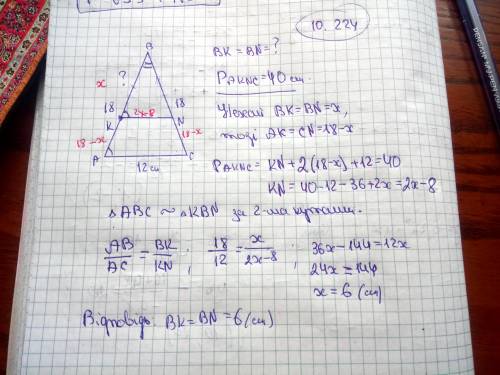 10. 224
BK = BN = ?
P AKNC = 40 см.
Нехай BK = BN = x,
тоді AK = CN = 18 - x
P AKNC = KN + 2(18-x) + 12 = 40
KN = 40 - 12 - 36 + 2x = 2x - 8
B
x
?
18
18
K
2x-8
N
18-x
18-x
A
C
12 см
△ABC ~ △KBN за 2-ма кутами.
AB/AC = BK/KN ; 18/12 = x/2x-8 ; 36x - 144 = 12x
24x = 144
x = 6 (см)
Відповідь: BK = BN = 6 (см)